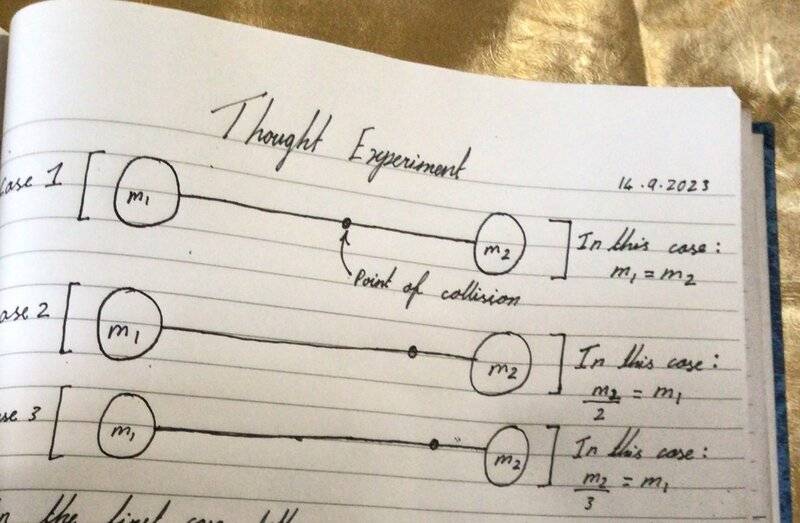 Thought Experiment
14.9.2023
case 1
m₁
m₂
In this case:
m₁ = m₂
Point of collision
ase 2
m₁
m₂
In this case:
m₂/2 = m₁
se 3
m₁
m₂
In this case:
m₂/3 = m₁
the first case